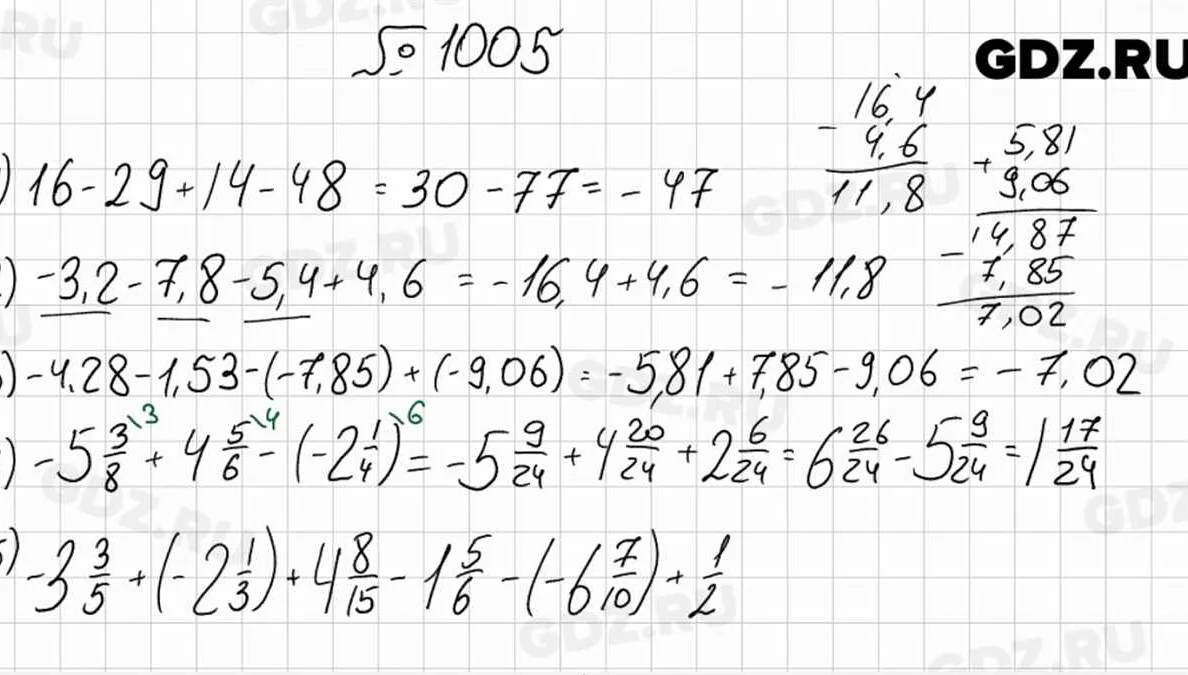 № 1005
GDZ.RU
16,4
- 4,6
11,8
5,81
+ 9,06
14,87
- 7,85
7,02
) 16 - 29 + 14 - 48 = 30 - 77 = - 47
) -3,2 - 7,8 - 5,4 + 4,6 = - 16,4 + 4,6 = - 11,8
) -4.28 - 1,53 - (-7,85) + (-9,06) = -5,81 + 7,85 - 9,06 = - 7,02
) -5 3/8 \3 + 4 5/6 \4 - (-2 1/4) \6 = -5 9/24 + 4 20/24 + 2 6/24 = 6 26/24 - 5 9/24 = 1 17/24
) -3 3/5 + (-2 1/3) + 4 8/15 - 1 5/6 - (-6 7/10) + 1/2